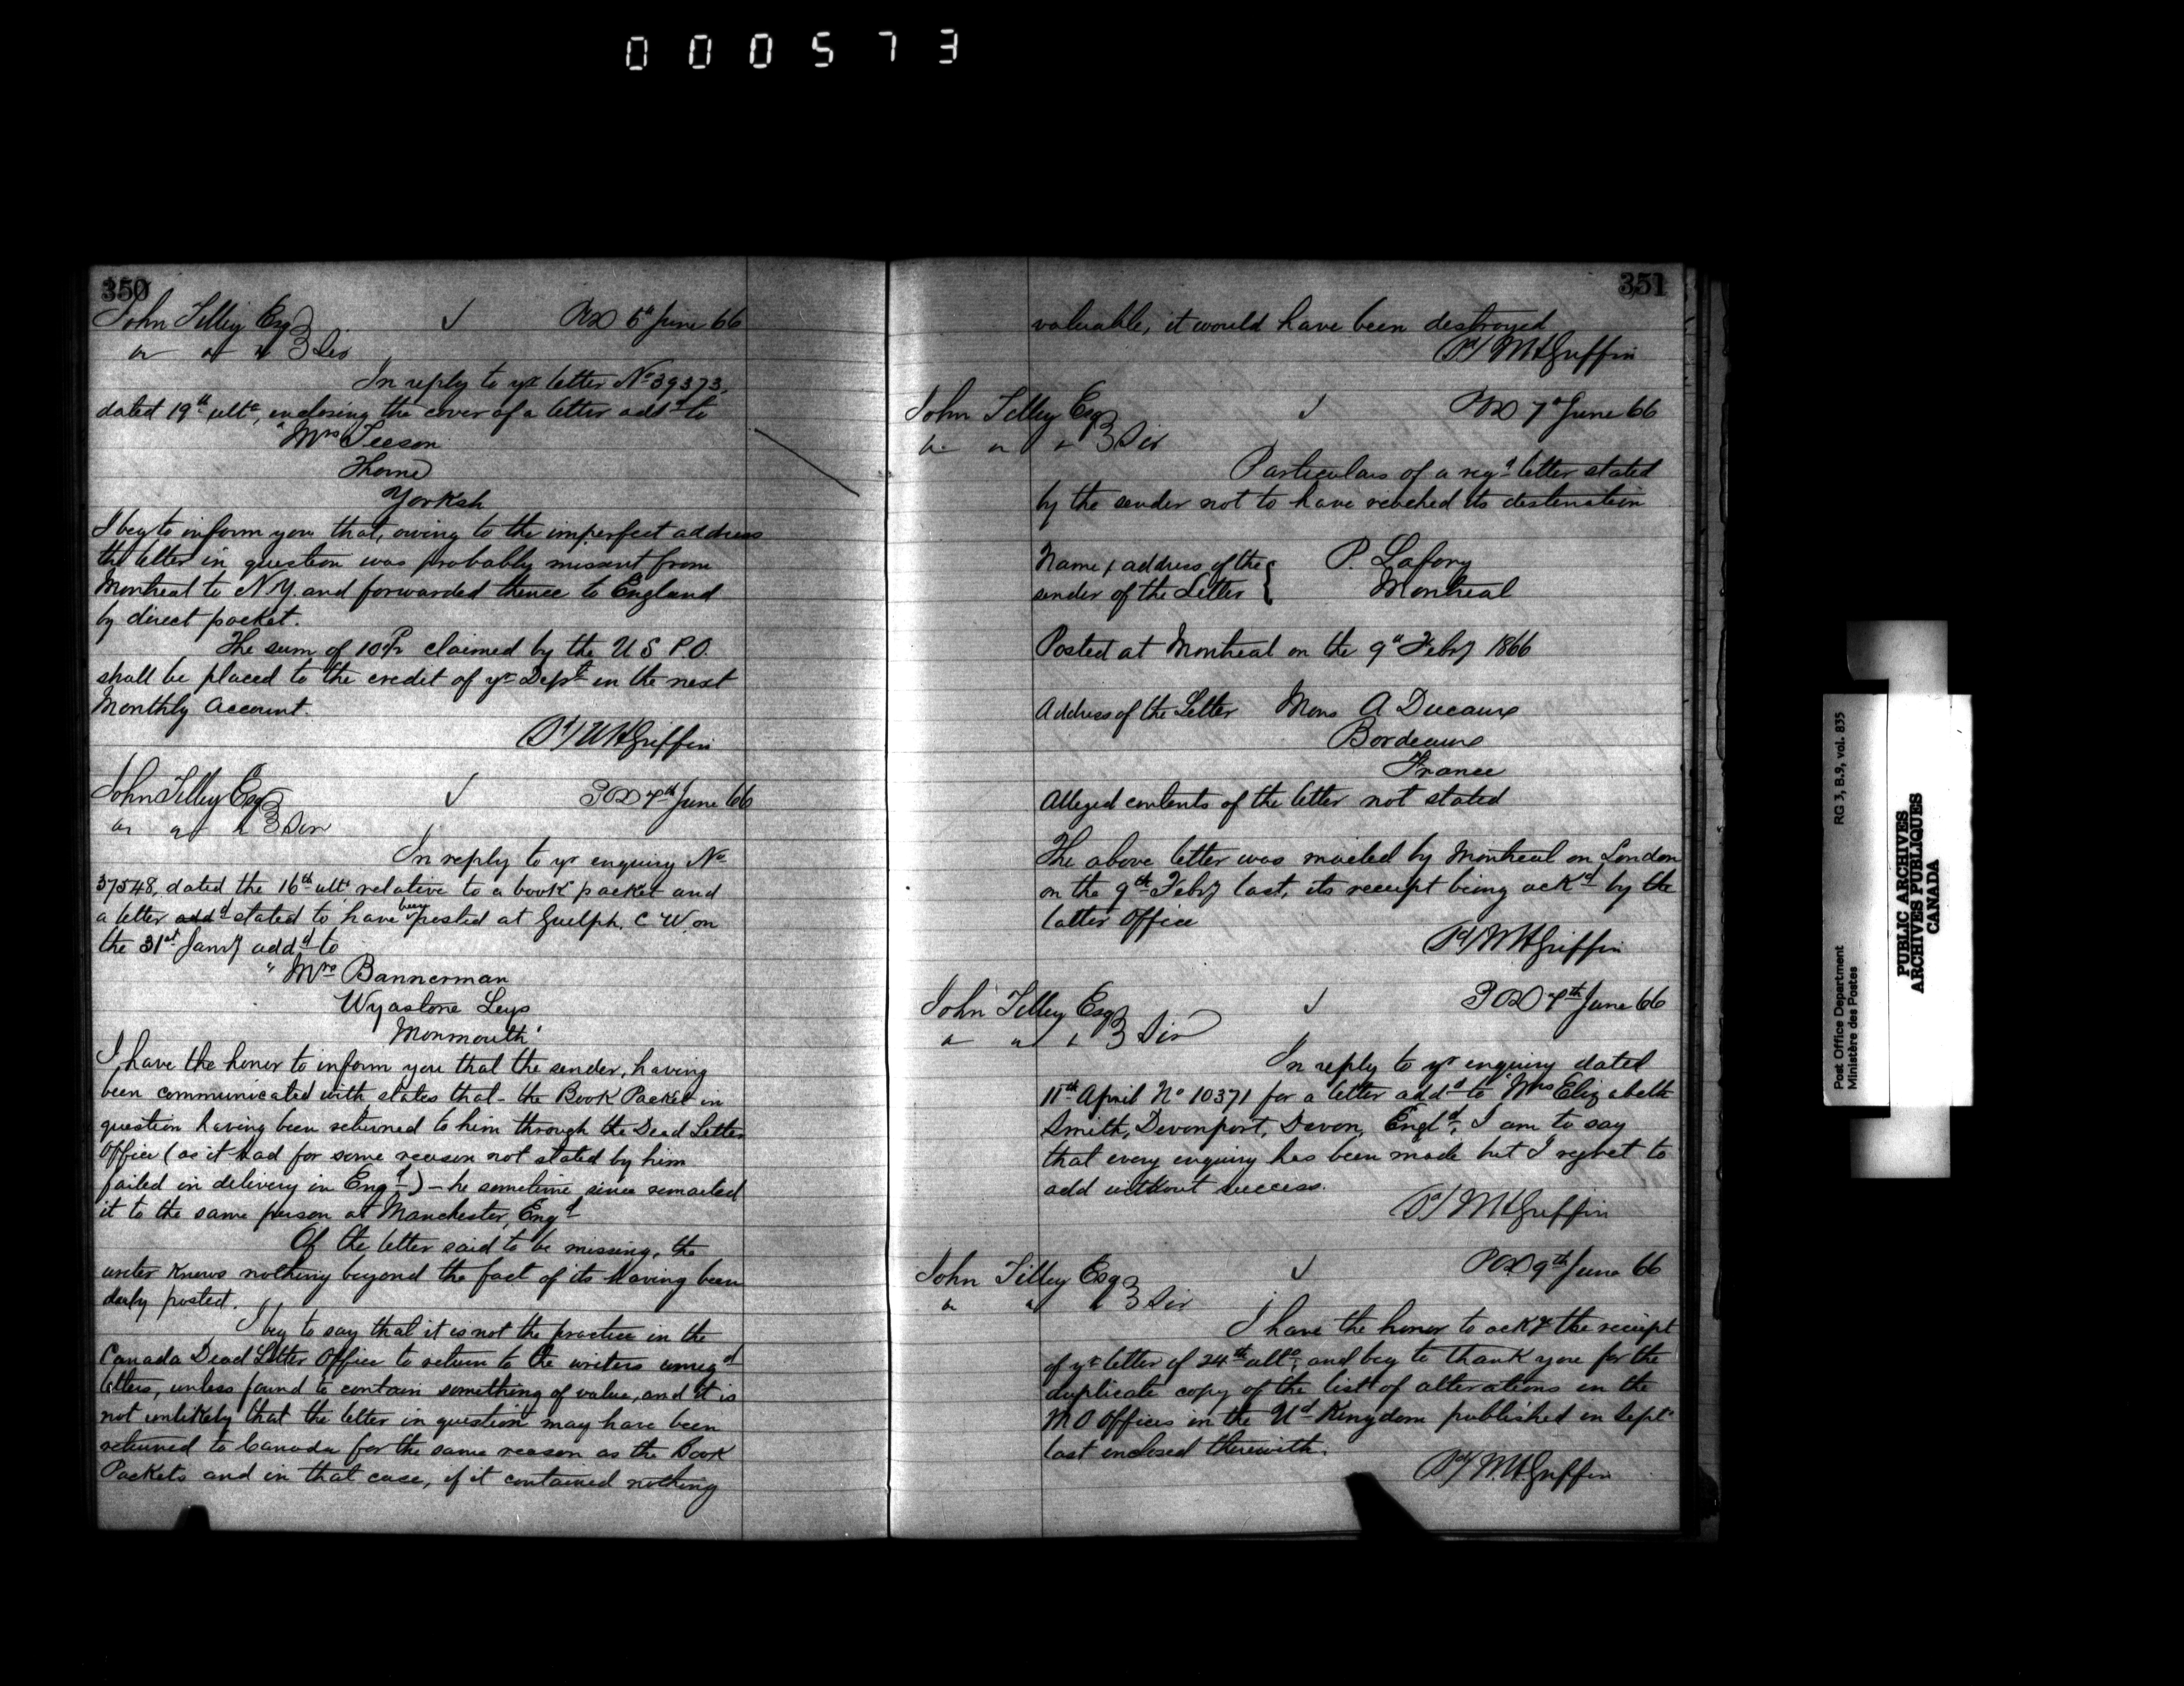 000573
350
John Tilley Esq POD 6th June 66
" " " } Sir
In reply to yr letter No 39373,
dated 19th ulto, enclosing the cover of a letter addd to
"Mrs Teeson
Thorne
Yorksh
I beg to inform you that, owing to the imperfect address
the letter in question was probably missent from
Montreal to N.Y. and forwarded thence to England
by direct packet.
The sum of claimed by the U S P.O.
shall be placed to the credit of yr Dept in the next
Monthly Account.
Sd/ W H Griffin
John Tilley Esq POD 7th June 66
" " " } Sir
In reply to yr enquiry No
37548, dated the 16th ulto relative to a book packet and
a letter addd stated to have been posted at Guelph, C W. on
the 31st Jany addd to
"Mrs Bannerman
Wyastone Leys
Monmouth"
I have the honor to inform you that the sender, having
been communicated with states that - the Book Packet in
question having been returned to him through the Dead Letter
Office (as it had for some reason not stated by him
failed in delivery in Engd) - he sometime since remailed
it to the same person at Manchester, Engd
Of the letter said to be missing, the
writer knows nothing beyond the fact of its having been
duly posted.
I beg to say that it is not the practice in the
Canada Dead Letter Office to return to the writers unregd
letters, unless found to contain something of value, and it is
not unlikely that the letter in question may have been
returned to Canada for the same reason as the Book
Packets and in that case, if it contained nothing
351
valuable, it would have been destroyed
Sd/ W H Griffin
John Tilley Esq POD 7th June 66
" " " } Sir
Particulars of a regd letter stated
by the sender not to have reached its destination
Name & address of the { P. Lafony
sender of the Letter { Montreal
Posted at Montreal on the 9th Feby 1866
Address of the Letter Mons A Ducaux
Bordeaux
France
Alleged contents of the letter not stated
The above letter was mailed by Montreal on London
on the 9th Feby last, its receipt being ackd by the
latter Office
Sd/ W H Griffin
John Tilley Esq POD 7th June 66
" " " } Sir
In reply to yr enquiry dated
11th April No 10371 for a letter addd to "Mrs Elizabeth
Smith, Devonport, Devon, Engld", I am to say
that every enquiry has been made but I regret to
add without success.
Sd/ W H Griffin
John Tilley Esq POD 9th June 66
" " " } Sir
I have the honor to ackge the receipt
of yr letter of 24th ulto, and beg to thank you for the
duplicate copy of the list of alterations in the
M O Offices in the Ud Kingdom published in Septr
last enclosed therewith.
Sd/ W. H. Griffin
Post Office Department RG 3, B.9, vol. 835
Ministère des Postes
PUBLIC ARCHIVES
ARCHIVES PUBLIQUES
CANADA